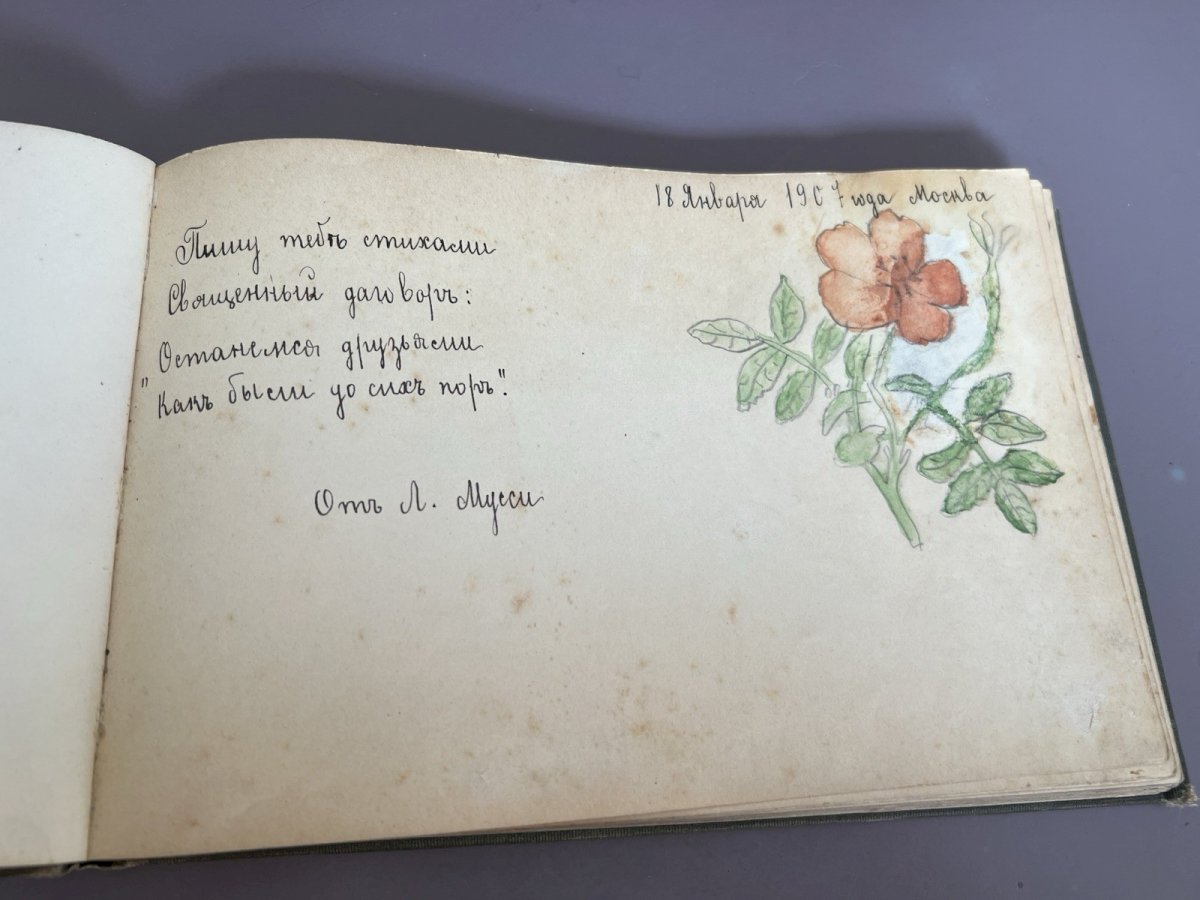 18 Января 1907 года Москва
Пишу тебѣ стихами
Священный даговоръ:
Останемся друзьями
"Какъ были до сихъ поръ".
Отъ Л. Мусси